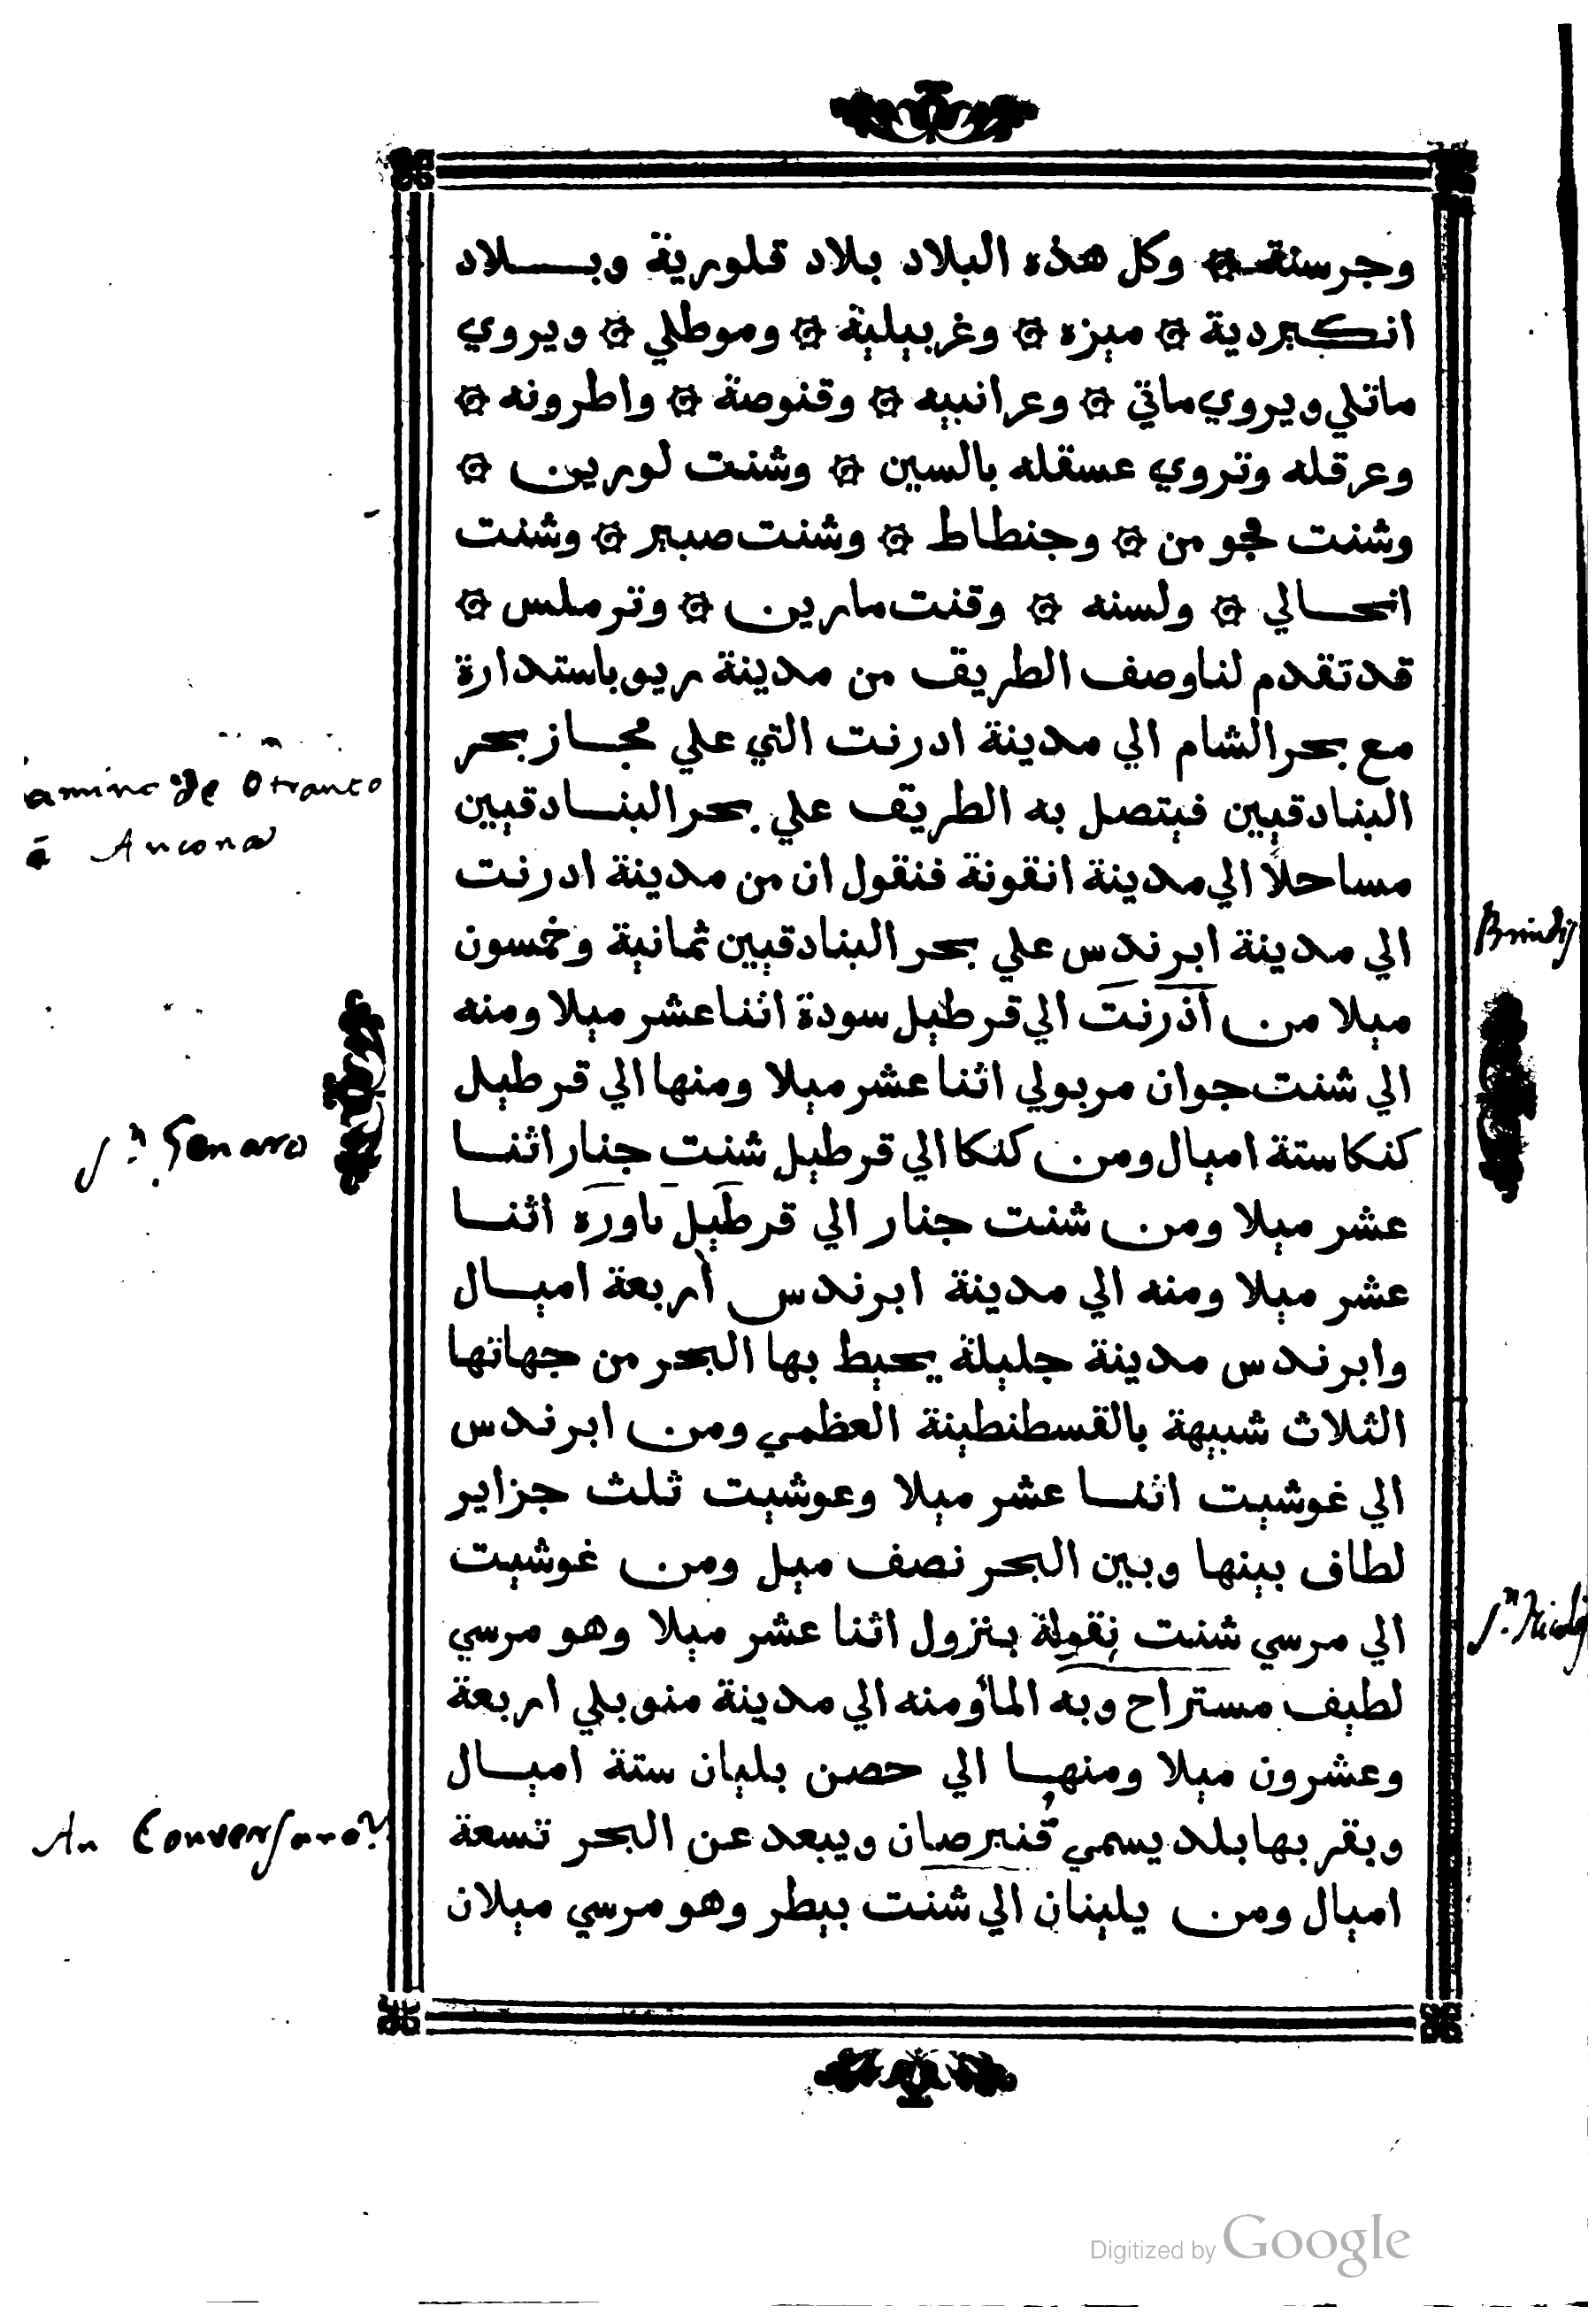 وجرسنة ۞ وكل هذه البلاد بلاد قلورية وبلاد
انكبردية ۞ ميزه ۞ وغربيلية ۞ وموطلي ۞ ويروي
ماتلي ويروي ماتي ۞ وعرانبيه ۞ وقنوصة ۞ واطرونه ۞
وعرقله وتروي عسقله بالسين ۞ وشنت لورين ۞
وشنت مجومن ۞ وجنطاط ۞ وشنت صبير ۞ وشنت
انجالي ۞ ولسنه ۞ وقنت مارين ۞ وترملس ۞
قد تقدم لنا وصف الطريق من مدينة ريو باستدارة
مع بحر الشام الي مدينة ادرنت التي علي مجاز بحر
البنادقيين فيتصل به الطريق علي بحر البنادقيين
مساحلا الي مدينة انقونة فنقول ان من مدينة ادرنت
الي مدينة ابرندس علي بحر البنادقيين ثمانية وخمسون
ميلا من آذرنت الي قرطيل سودة اثنا عشر ميلا ومنه
الي شنت جوان مربولي اثنا عشر ميلا ومنها الي قرطيل
كنكا ستة اميال ومن كنكا الي قرطيل شنت جنار اثنا
عشر ميلا ومن شنت جنار الي قرطيل باوره اثنا
عشر ميلا ومنه الي مدينة ابرندس أربعة اميال
وابرندس مدينة جليلة يحيط بها البحر من جهاتها
الثلاث شبيهة بالقسطنطينة العظمي ومن ابرندس
الي غوشيت اثنا عشر ميلا وعوشيت ثلث جزاير
لطاف بينها وبين البحر نصف ميل ومن غوشيت
الي مرسي شنت نقولة بنزول اثنا عشر ميلا وهو مرسي
لطيف مستراح وبه المأ ومنه الي مدينة منوبلي اربعة
وعشرون ميلا ومنها الي حصن بليان ستة اميال
وبقربها بلد يسمي قُنبرصان ويبعد عن البحر تسعة
اميال ومن يلينان الي شنت بيطر وهو مرسي ميلان
amino de Otranto
á Ancona
Brindis
Sn. Genaro
Sn. Nicola
An Conversano?
Digitized by Google